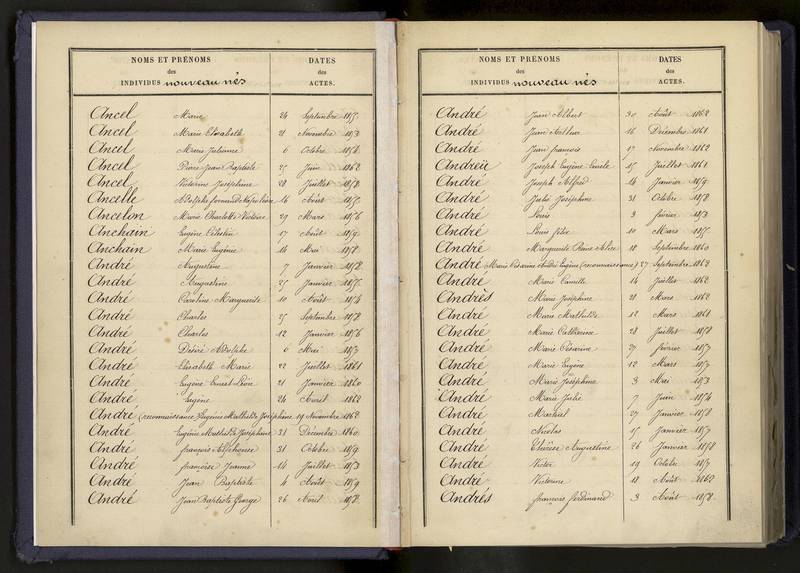 NOMS ET PRÉNOMS
des
INDIVIDUS nouveau nés
DATES
des
ACTES.
Ancel Marie 24 Septembre
Ancel Marie Elisabeth 21 Novembre 1853
Ancel Marie Julienne 6 Octobre 1858
Ancel Pierre Jean Baptiste 25 Juin 1862
Ancel Victorine Joséphine 28 Juillet 1858
Ancelle Adolphe fernand Napoléon 16 Août
Ancelon Marie Charlotte Victoire 29 Mars 1856
Anchain Eugène Célestin 17 Août 1859
Anchain Marie Eugénie 14 Mai 1858
André Augustine 7 Janvier 1858
André Augustine 25 Janvier
André Caroline Marguerite 10 Août 1854
André Charles 25 Septembre 1858
André Charles 12 Janvier 1856
André Désiré Adolphe 6 Mai 1857
André Elisabeth Marie 22 Juillet 1861
André Eugène Ernest Léon 21 Janvier 1860
André Eugène 24 Avril 1862
André (reconnaissance) Eugénie Mathilde Joséphine 19 Novembre 1862
André Eugénie Mathilde Joséphine 31 Décembre 1860
André françois Alphonse 31 Octobre 1859
André françoise Jeanne 14 Juillet 1853
André Jean Baptiste 4 Août 1859
André Jean Baptiste George 26 Avril 1858
NOMS ET PRÉNOMS
des
INDIVIDUS nouveau nés
DATES
des
ACTES.
André Jean Albert 30 Août 1862
André Jean Arthur 16 Décembre 1861
André Jean françois 17 Novembre 1862
Andreïu Joseph Eugène Emile 15 Juillet 1861
André Joseph Alfred 14 Janvier 1859
André Jules Joséphine 31 Octobre 1858
André Louis 9 février 1853
André Louis 10 Mars
André Marguerite 18 Septembre 1860
André Marie Césarine André Eugène (reconnaissance) 27 Septembre 1862
André Marie Camille 14 Juillet 1862
Andrés Marie Joséphine 21 Mars 1862
André Marie Mathilde 12 Mars 1861
André Marie Catherine 28 Juillet 1858
André Marie Césarine 27 février 1857
André Marie Eugène 12 Mars 1857
André Marie Joséphine 3 Mai 1853
André Marie Julie 7 Juin 1854
André 27 Janvier 1858
André Nicolas 15 Janvier 1857
André Thérèse Augustine 26 Janvier 1858
André Victor 19 Octobre 1857
André Victorine 18 Août 1862
Andrés françois ferdinand 3 Août 1858